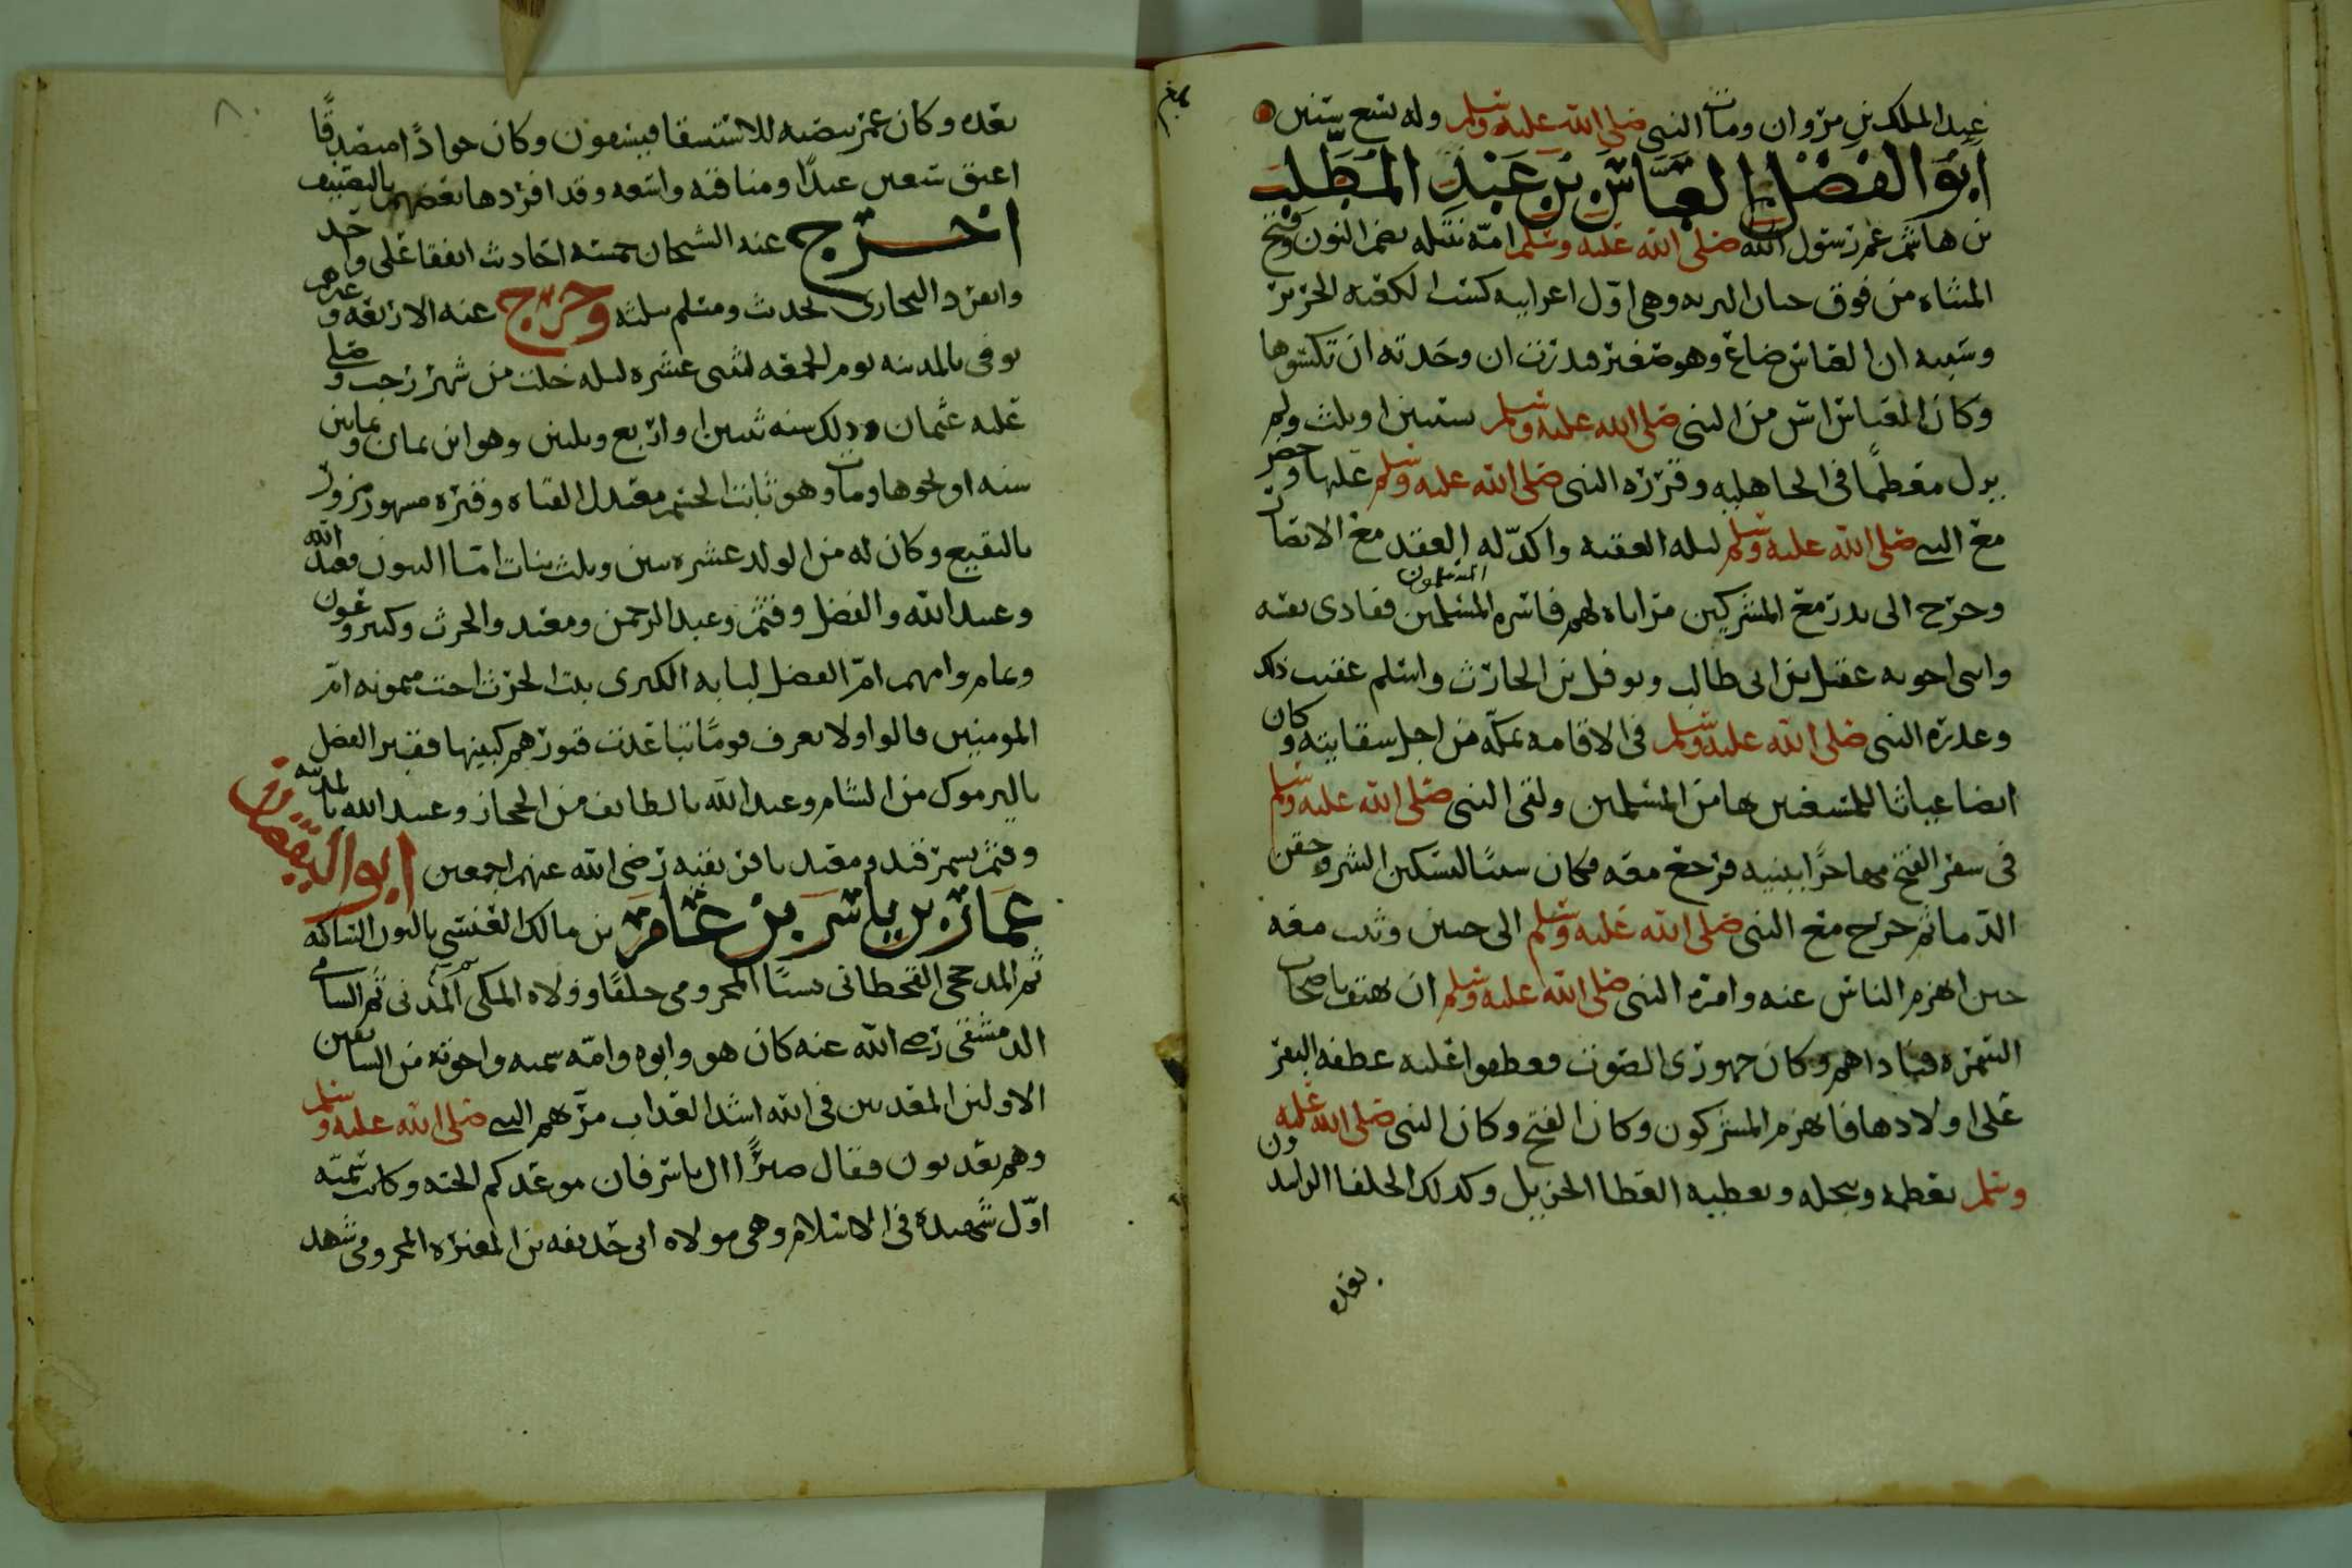 عبد الملك بن مروان ومات النبي صلى الله عليه وسلم وله تسع سنين
ابو الفضل العباس بن عبد المطلب
بن هاشم عم رسول الله صلى الله عليه وسلم امه نتيله بضم النون وفتح
المثناه من فوق حنان البريه وهي اول اعرابيه كست الكعبه الحرير
وسببه ان العباس ضاع وهو صغير فنذرت ان وجدته ان تكسوها
وكان العباس اسن من النبي صلى الله عليه وسلم بسنتين او بثلث ولم
يزل معظما في الجاهليه وقرره النبي صلى الله عليه وسلم عليها وحضر
مع النبي صلى الله عليه وسلم ليله العقبه واكد له العقد مع الانصار
وخرج الى بدر مع المشركين مراياه لهم فاسره المسلمين المسلمون ففادى نفسه
وابني اخويه عقيل بن ابي طالب ونوفل بن الحارث واسلم عقيب ذلك
وعذره النبي صلى الله عليه وسلم في الاقامه بمكه من اجل سقايته وكان
ايضا عياثا للمستضعفين بها من المسلمين ولقي النبي صلى الله عليه وسلم
في سفر الفتح مهاجرا ببنيه فرجع معه فكان سببا لتسكين الشر وحقن
الدما ثم خرج مع النبي صلى الله عليه وسلم الى حنين وثبت معه
حين انهزم الناس عنه وامره النبي صلى الله عليه وسلم ان يهتف باصحاب
السمره فناداهم وكان جهوري الصوت فعطفوا عليه عطفه البقر
على اولادها فانهزم المشركون وكان الفتح وكان النبي صلى الله عليه
وسلم يعظمه ويبجله ويعطيه العطا الجزيل وكذلك الخلفا الراشدون
بعده
بعده وكان عمر ينصبه للاستسقا فيسقون وكان جوادا متصدقا
اعتق سبعين عبدا ومناقبه واسعه وقد افردها بعضهم بالتصنيف
اخرج عنه الشيخان خمسه احاديث اتفقا على واحد
وانفرد البخاري بحديث ومسلم بثلثه وخرج عنه الاربعه وغيرهم
توفي بالمدينه يوم الجمعه لثنتي عشره ليله خلت من شهر رجب وصلى
عليه عثمان وذلك سنه ثنتين او اربع وثلثين وهو ابن ثمان وثمانين
سنه او نحوها ومات وهو ثابت الجسم معتدل القناه وقبره مشهور مزور
بالبقيع وكان له من الولد عشره بنين وثلث بنات اما البنون فعبد الله
وعبيد الله والفضل وقثم وعبد الرحمن ومعبد والحرث وكثير وعون
وتمام وامهم ام الفضل لبابه الكبرى بنت الحرث اخت ميمونه ام
المومنين قالوا ولا يعرف قوما تباعدت قبورهم كبنيها فقبر الفضل
باليرموك من الشام وعبد الله بالطايف من الحجاز وعبيد الله بالمدينه
وقثم بسمرقند ومعبد بافريقيه رضي الله عنهم اجمعين ابو اليقظان
عمار بن ياسر بن عامر بن مالك العنسي بالنون الساكنه
ثم المذحجي القحطاني نسبا المخزومي حلفا وولاه المكي المدني ثم الشامي
الدمشقي رضي الله عنه كان هو وابوه وامه سميه واخوته من السابقين
الاولين المعذبين في الله اشد العذاب مر بهم النبي صلى الله عليه وسلم
وهم يعذبون فقال صبرا ال ياسر فان موعدكم الجنه وكانت سميه
اول شهيده في الاسلام وهي مولاه ابي حذيفه بن المغيره المخزومي شهد